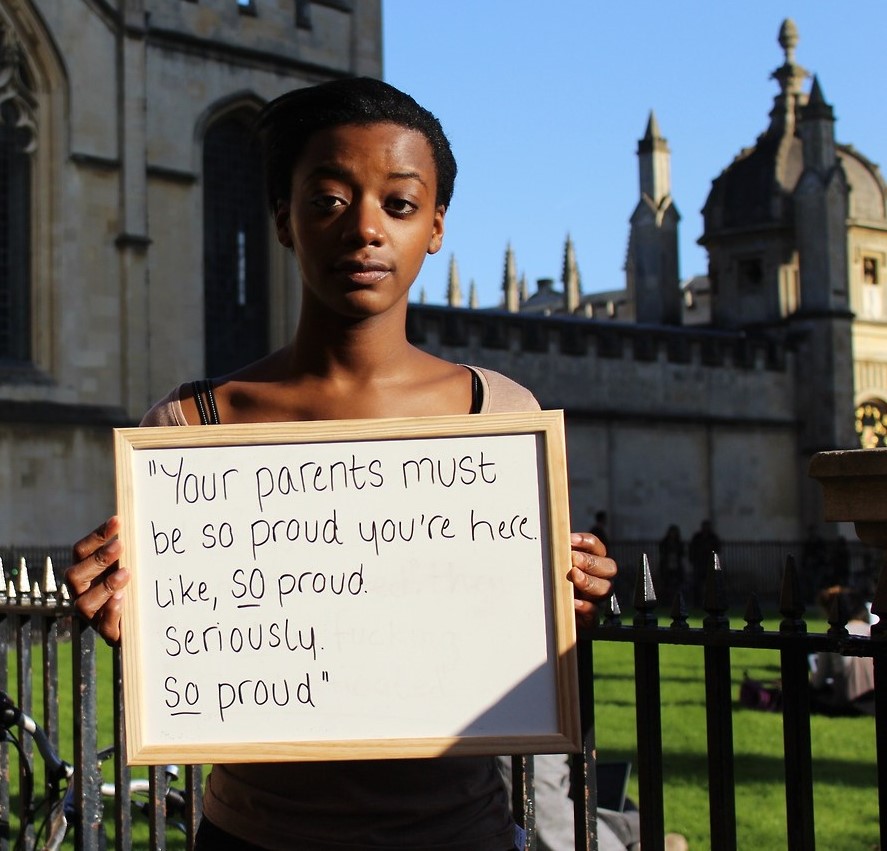 "Your parents must
be so proud you're here.
Like, SO proud.
Seriously.
So proud"